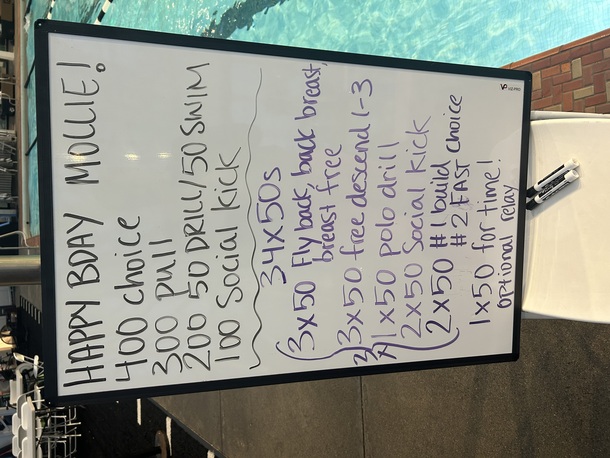 HAPPY BDAY MOLLIE!
400 choice
300 pull
200 50 DRILL/50 SWIM
100 Social kick
34x50s
3x50 Fly back, back breast,
breast free
3x50 free descend 1-3
3x
1x50 polo drill
2x50 Social kick
2x50 #1 build
#2 FAST choice
1x50 for time!
optional relay